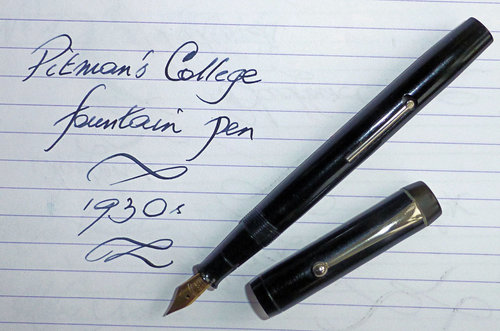 Pitman's College
fountain pen
1930s